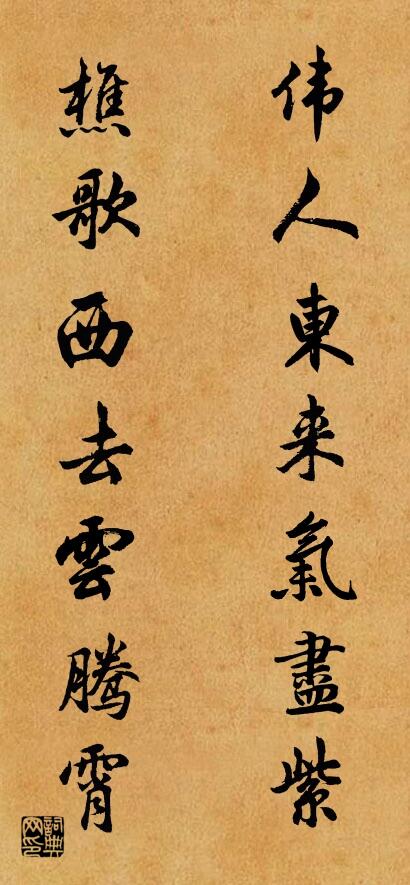 伟人東来氣盡紫
樵歌西去雲騰霄
詞典网印